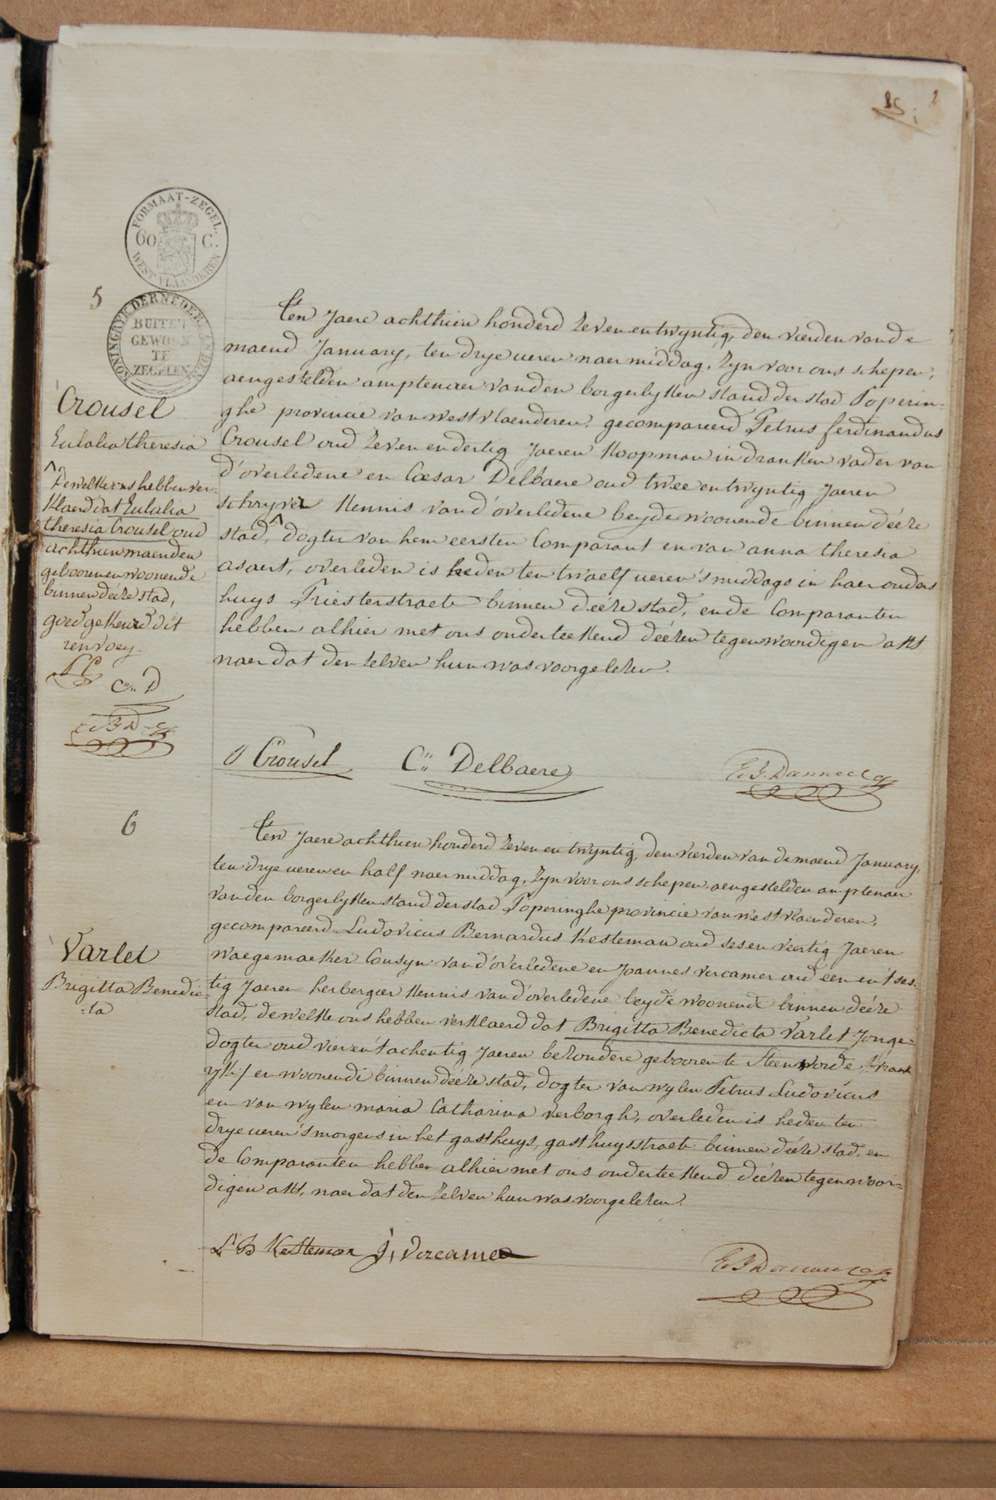 25
FORMAAT-ZEGEL
60 C.
WEST VLAANDEREN
KONINGRYK DER NEDER
BUITEN
GEWOON
TE
ZEGELEN
5
Crousel
Eulalia theresia
dewelke ons hebben ver-
klaerd dat Eulalia
theresia Crousel oud
achthien maenden
gebooren en woonende
binnen déeze stad,
goed gekeurd dit
renvoey
C.. D
Ten Jaere achthien honderd zeven en twyntig, den vierden van de
maend January, ten drye ueren naer middag, zyn voor ons schepen,
aengestelden amptenaer van den borgerlyken stand der stad Poperin-
ghe provincie van westvlaenderen, gecompareerd Petrus ferdinandus
Crousel oud zeven en dertig Jaeren koopman in dranken vader van
d'overledene en Cæsar Delbaere oud twee en twyntig Jaeren
schryver kennis van d'overledene beyde woonende binnen déeze
stad, dogter van hem eersten Comparant en van anna theresia
asaert, overleden is heden ten twaelf ueren 's middags in haer ouders
huys Priesterstraete binnen déeze stad, ende Comparanten
hebben alhier met ons onderteekend déezen tegenwoordigen akt
naer dat den zelven hun was voorgelezen.
Crousel C.. Delbaere
6
Varlet
Brigitta Benedic-
ta
Ten Jaere achthien honderd zeven en twyntig, den vierden van de maend January,
ten drye ueren en half naer middag, zyn voor ons schepen, aengestelden amptenaer
van den borgerlyken stand der stad Poperinghe provincie van westvlaenderen,
gecompareerd Ludovicus Bernardus Kesteman oud ses en veertig Jaeren
waegemaeker Cousyn van d'overledene en Joannes vercamer oud een en tses-
tig Jaeren herbergier kennis van d'overledene beyde woonende binnen déeze
stad, dewelke ons hebben verklaerd dat Brigitta Benedicta Varlet Jonge-
dogter oud vier en tachentig Jaeren bezondere gebooren te Steenvorde /vrank
ryk/ en woonende binnen déeze stad, dogter van wylen Petrus Ludovicus
en van wylen maria Catharina verborgh, overleden is heden ten
drye ueren 's morgens in het gasthuys, gasthuysstraete binnen déeze stad, en
de Comparanten hebben alhier met ons onderteekend déezen tegenwoor-
digen akt, naer dat den zelven hun was voorgelezen.
L B Kesteman J, Vercamer